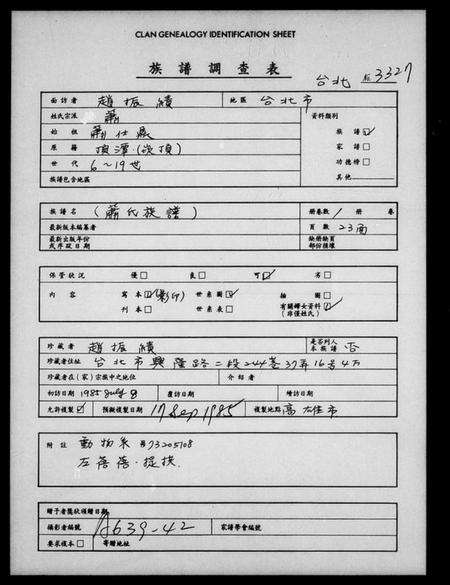 CLAN GENEALOGY IDENTIFICATION SHEET
族譜調查表
台北 3327
面訪者 趙振績 地區 台北市
姓氏宗派 蕭 資料類別
始祖 蕭仕 族譜 ☑
原籍 家譜 □
世代 6~19世 功德榜 □
族譜包含地區 其他
族譜名 (蕭氏族譜) 冊卷數 / 冊 卷
最新版本編纂者 頁數 23面
最新出版年份或序跋日期 缺冊缺頁部份損壞
保管狀況 優 □ 良 □ 可 ☑ 劣 □
內容 寫本 ☑ (影印) 世系圖 ☑ 插圖 □
刊本 □ 世系表 □ 有關婦女資料 ☑ (非僅姓氏)
珍藏者 趙振績 是否列入本族譜 否
珍藏者住址 台北市興隆路二段244巷37弄16号4F
珍藏者在(家)宗族中之地位 介紹者
初訪日期 1985 July 8 覆訪日期 續訪日期
允許複製 ☑ 預擬複製日期 17 Sep 1985 複製地點 高雄市
附註 動物系 73205708
左蓓蓓·提供
贈予者獎狀頒贈日期
攝影者編號 A639-42 家譜學會編號
要求複本 □ 寄贈地址